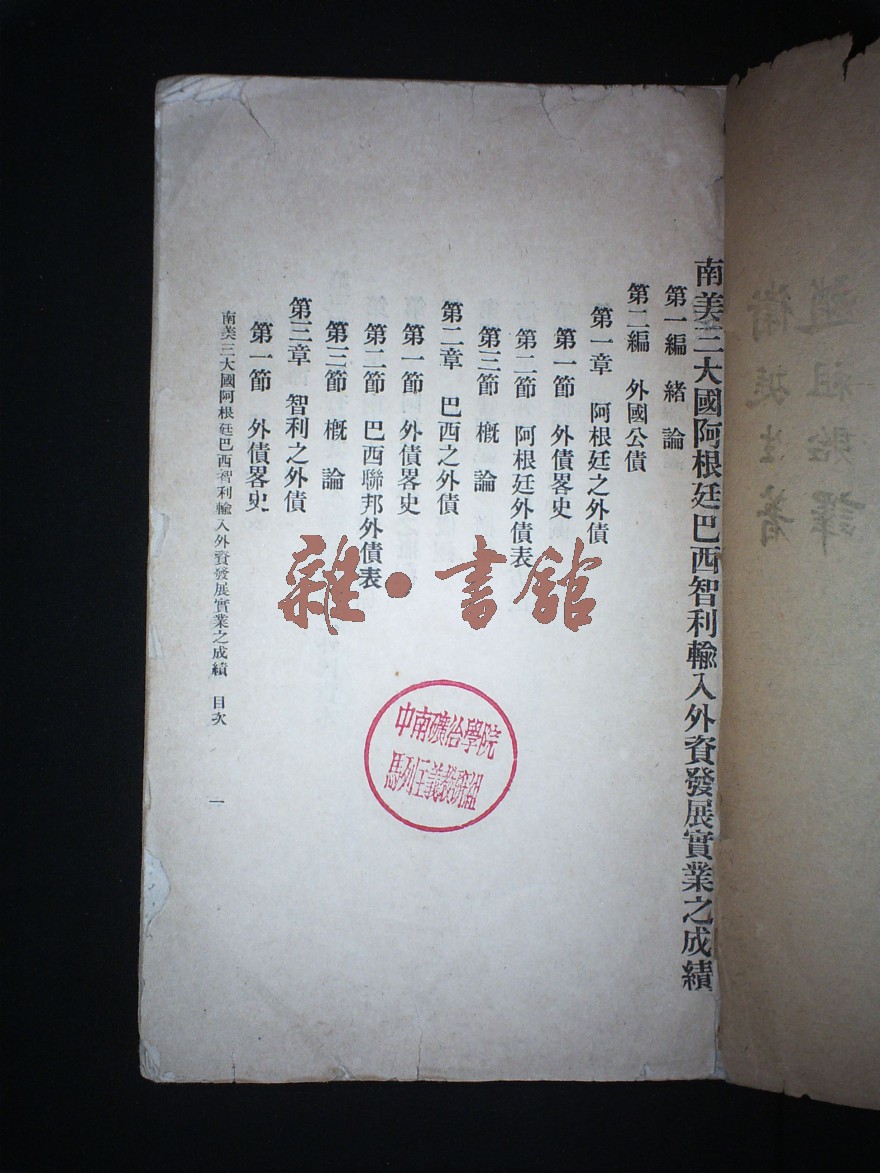 南美三大國阿根廷巴西智利輸入外資發展實業之成績
第一編　緒　論
第二編　外國公債
第一章　阿根廷之外債
第一節　外債畧史
第二節　阿根廷外債表
第三節　概　論
第二章　巴西之外債
第一節　外債畧史
第二節　巴西聯邦外債表
第三節　概　論
第三章　智利之外債
第一節　外債畧史
南美三大國阿根廷巴西智利輸入外資發展實業之成績　目次　一
雜·書館
中南礦冶學院
馬列主義教研組
趙祖貽譯
衛挺生著